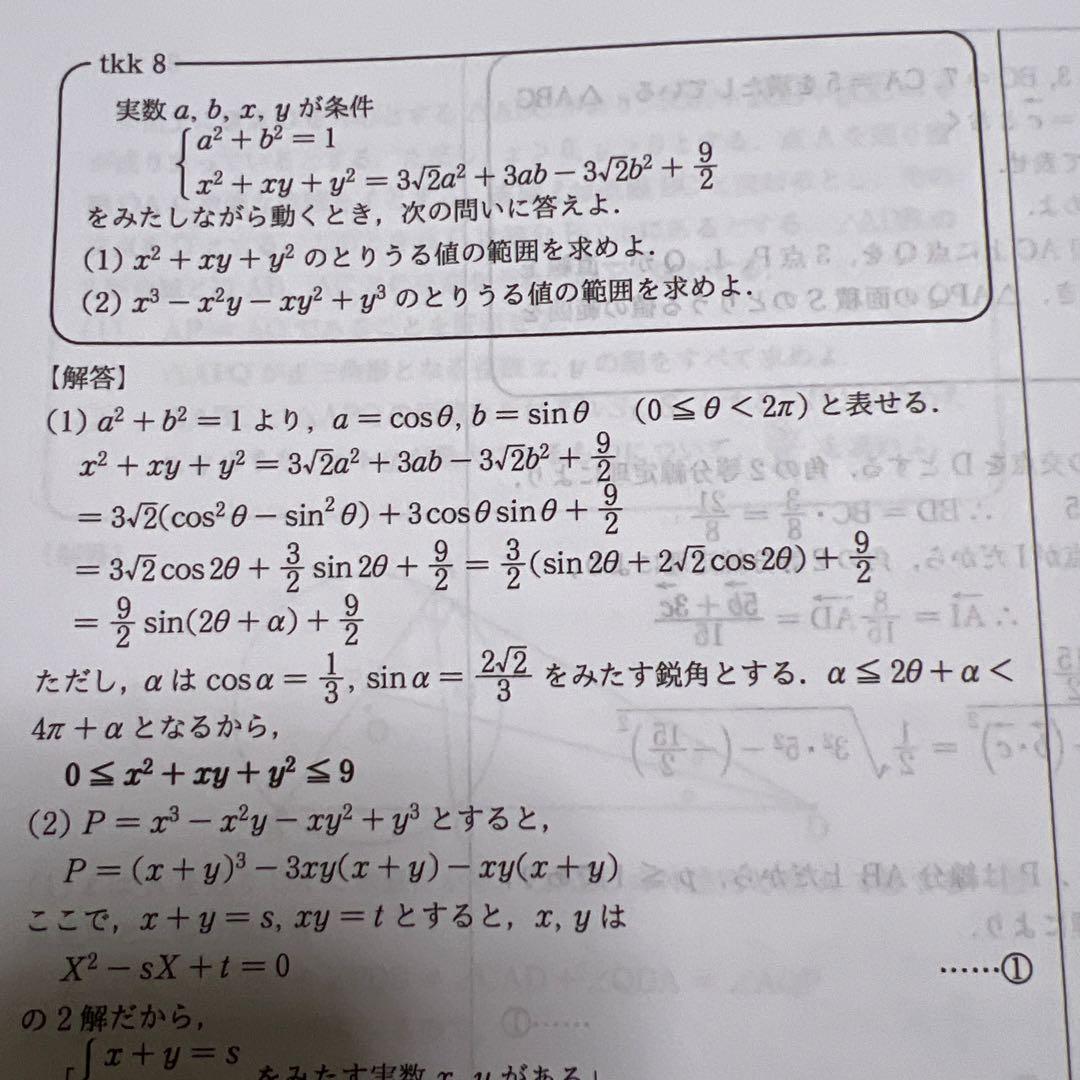 tkk 8
実数 a, b, x, y が条件
{ a² + b² = 1
x² + xy + y² = 3√2a² + 3ab − 3√2b² + 9/2
をみたしながら動くとき，次の問いに答えよ．
(1) x² + xy + y² のとりうる値の範囲を求めよ．
(2) x³ − x²y − xy² + y³ のとりうる値の範囲を求めよ．
【解答】
(1) a² + b² = 1 より，a = cosθ, b = sinθ (0 ≦ θ < 2π) と表せる．
x² + xy + y² = 3√2a² + 3ab − 3√2b² + 9/2
= 3√2(cos²θ − sin²θ) + 3cosθsinθ + 9/2
= 3√2cos2θ + 3/2 sin2θ + 9/2 = 3/2(sin2θ + 2√2cos2θ) + 9/2
= 9/2 sin(2θ + α) + 9/2
ただし，α は cosα = 1/3, sinα = 2√2/3 をみたす鋭角とする．α ≦ 2θ + α <
4π + α となるから，
0 ≦ x² + xy + y² ≦ 9
(2) P = x³ − x²y − xy² + y³ とすると，
P = (x + y)³ − 3xy(x + y) − xy(x + y)
ここで，x + y = s, xy = t とすると，x, y は
X² − sX + t = 0 ……①
の 2 解だから，
「{ x + y = s
をみたす実数 x, y がある」